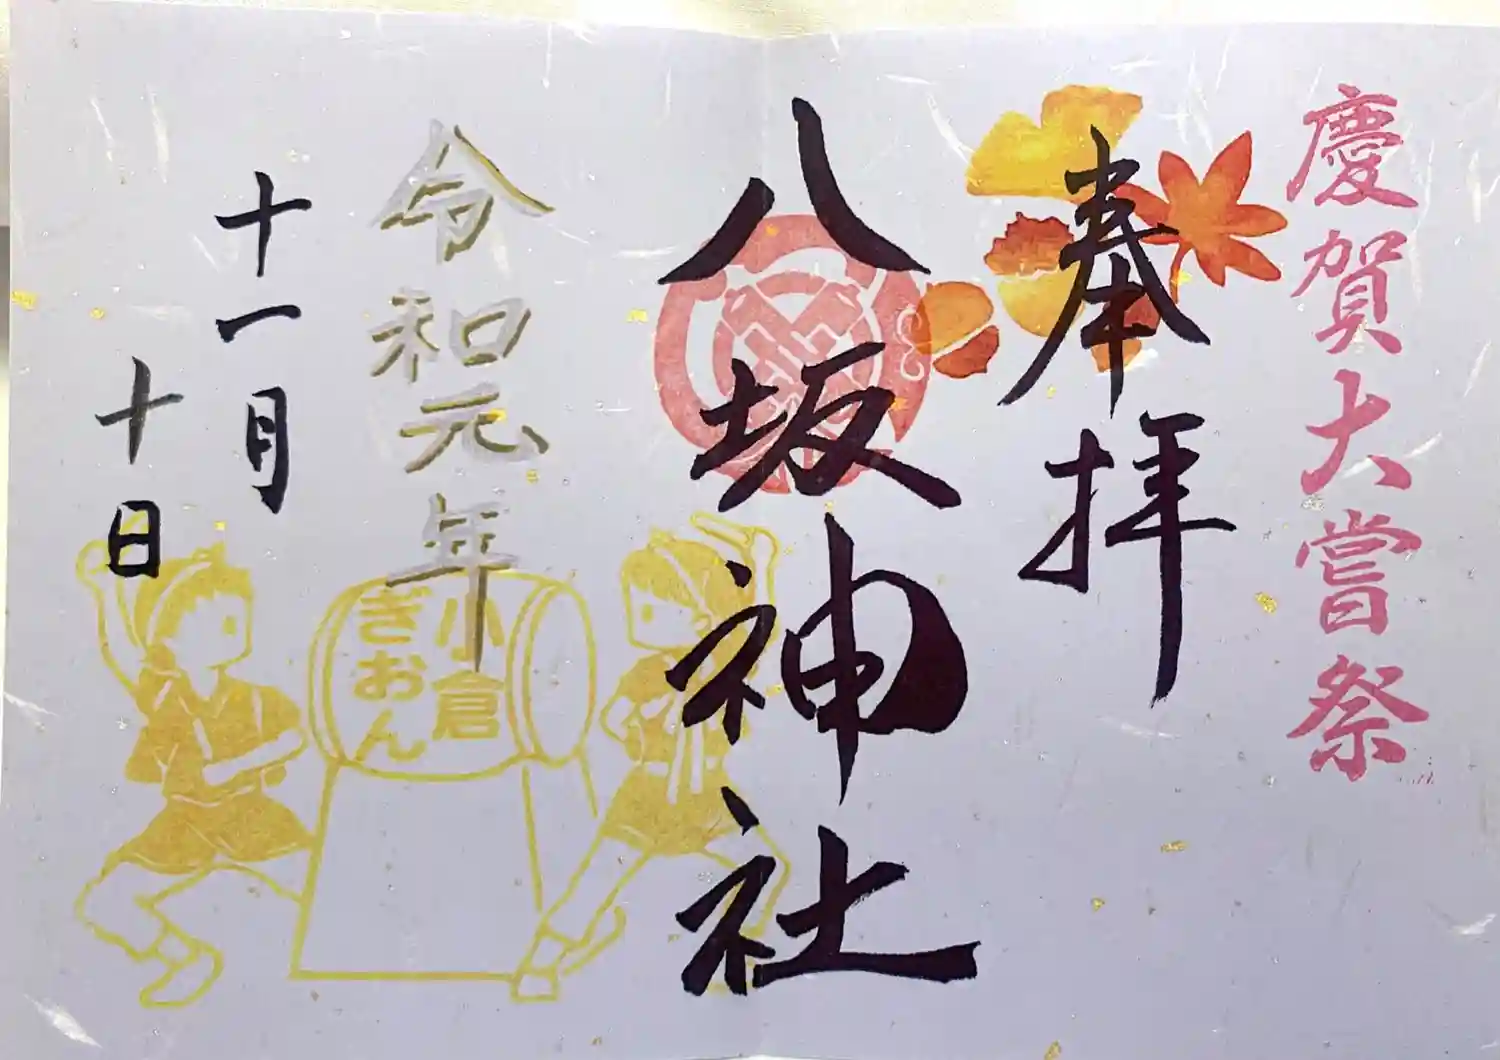 慶賀大嘗祭
奉拝
八坂神社
令和元年
十一月
十日
小倉
ぎおん